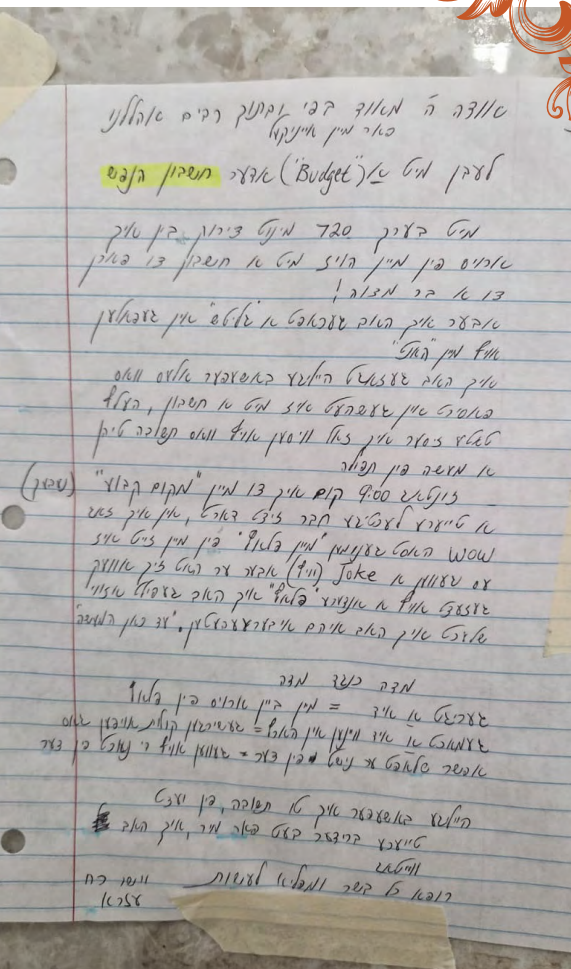 אוודה ה' מאוד בפי ובתוך רבים אהללנו
פאר מיין אייניקל
לעבן מיט א ("Budget") אדער חשבון הנפש
מיט בערך 720 מינוט צירוק בין איך
ארויס פין מיין הויז מיט א חשבון צו פארן
צו א בר מצוה!
אבער איך האב געכאפט א "גליטש" אין געפאלען
אויף מיין "האנט"
איך האב געזאגט הייליגע באשעפער אלעס וואס
פאסירט אין געשעהט איז מיט א חשבון, העלף
טאטע זיסער איך זאל וויסען אויף וואס תשובה טוהן
א מעשה פין תפילה
זונטאג 9:00 קום איך צו מיין "מקום קבוע" (שבעק)
א טייערע לעכטיגע חבר זיצט דארט, אין איך זאג
wow האסט גענומען "מיין פלאץ" פין מיין זייט איז
עס געווען א Joke (וויץ) אבער ער האט זיך אוועק
געזעצט אויף א אנדערע "פלאץ" איך האב געפילט אזוי
שלעכט איך האב איהם איבערגעבעטען. "עד כאן המעשה"
מדה כנגד מדה
געריקט א איד = מיין ביין ארויס פין פלאץ
געמאכט א איד וויינען אין הארץ = געשריגען קולות אויפען גאס
אפשר שלאפט ער נישט פין דער = געווען אויף די נאכט פין דער
הייליגע באשעפער איך טו תשובה, פין יעצט
טייערע ברידער בעט פאר מיר, איך האב
ווייטאג
רופא כל בשר ומפליא לעשות
יישר כח
עזרא